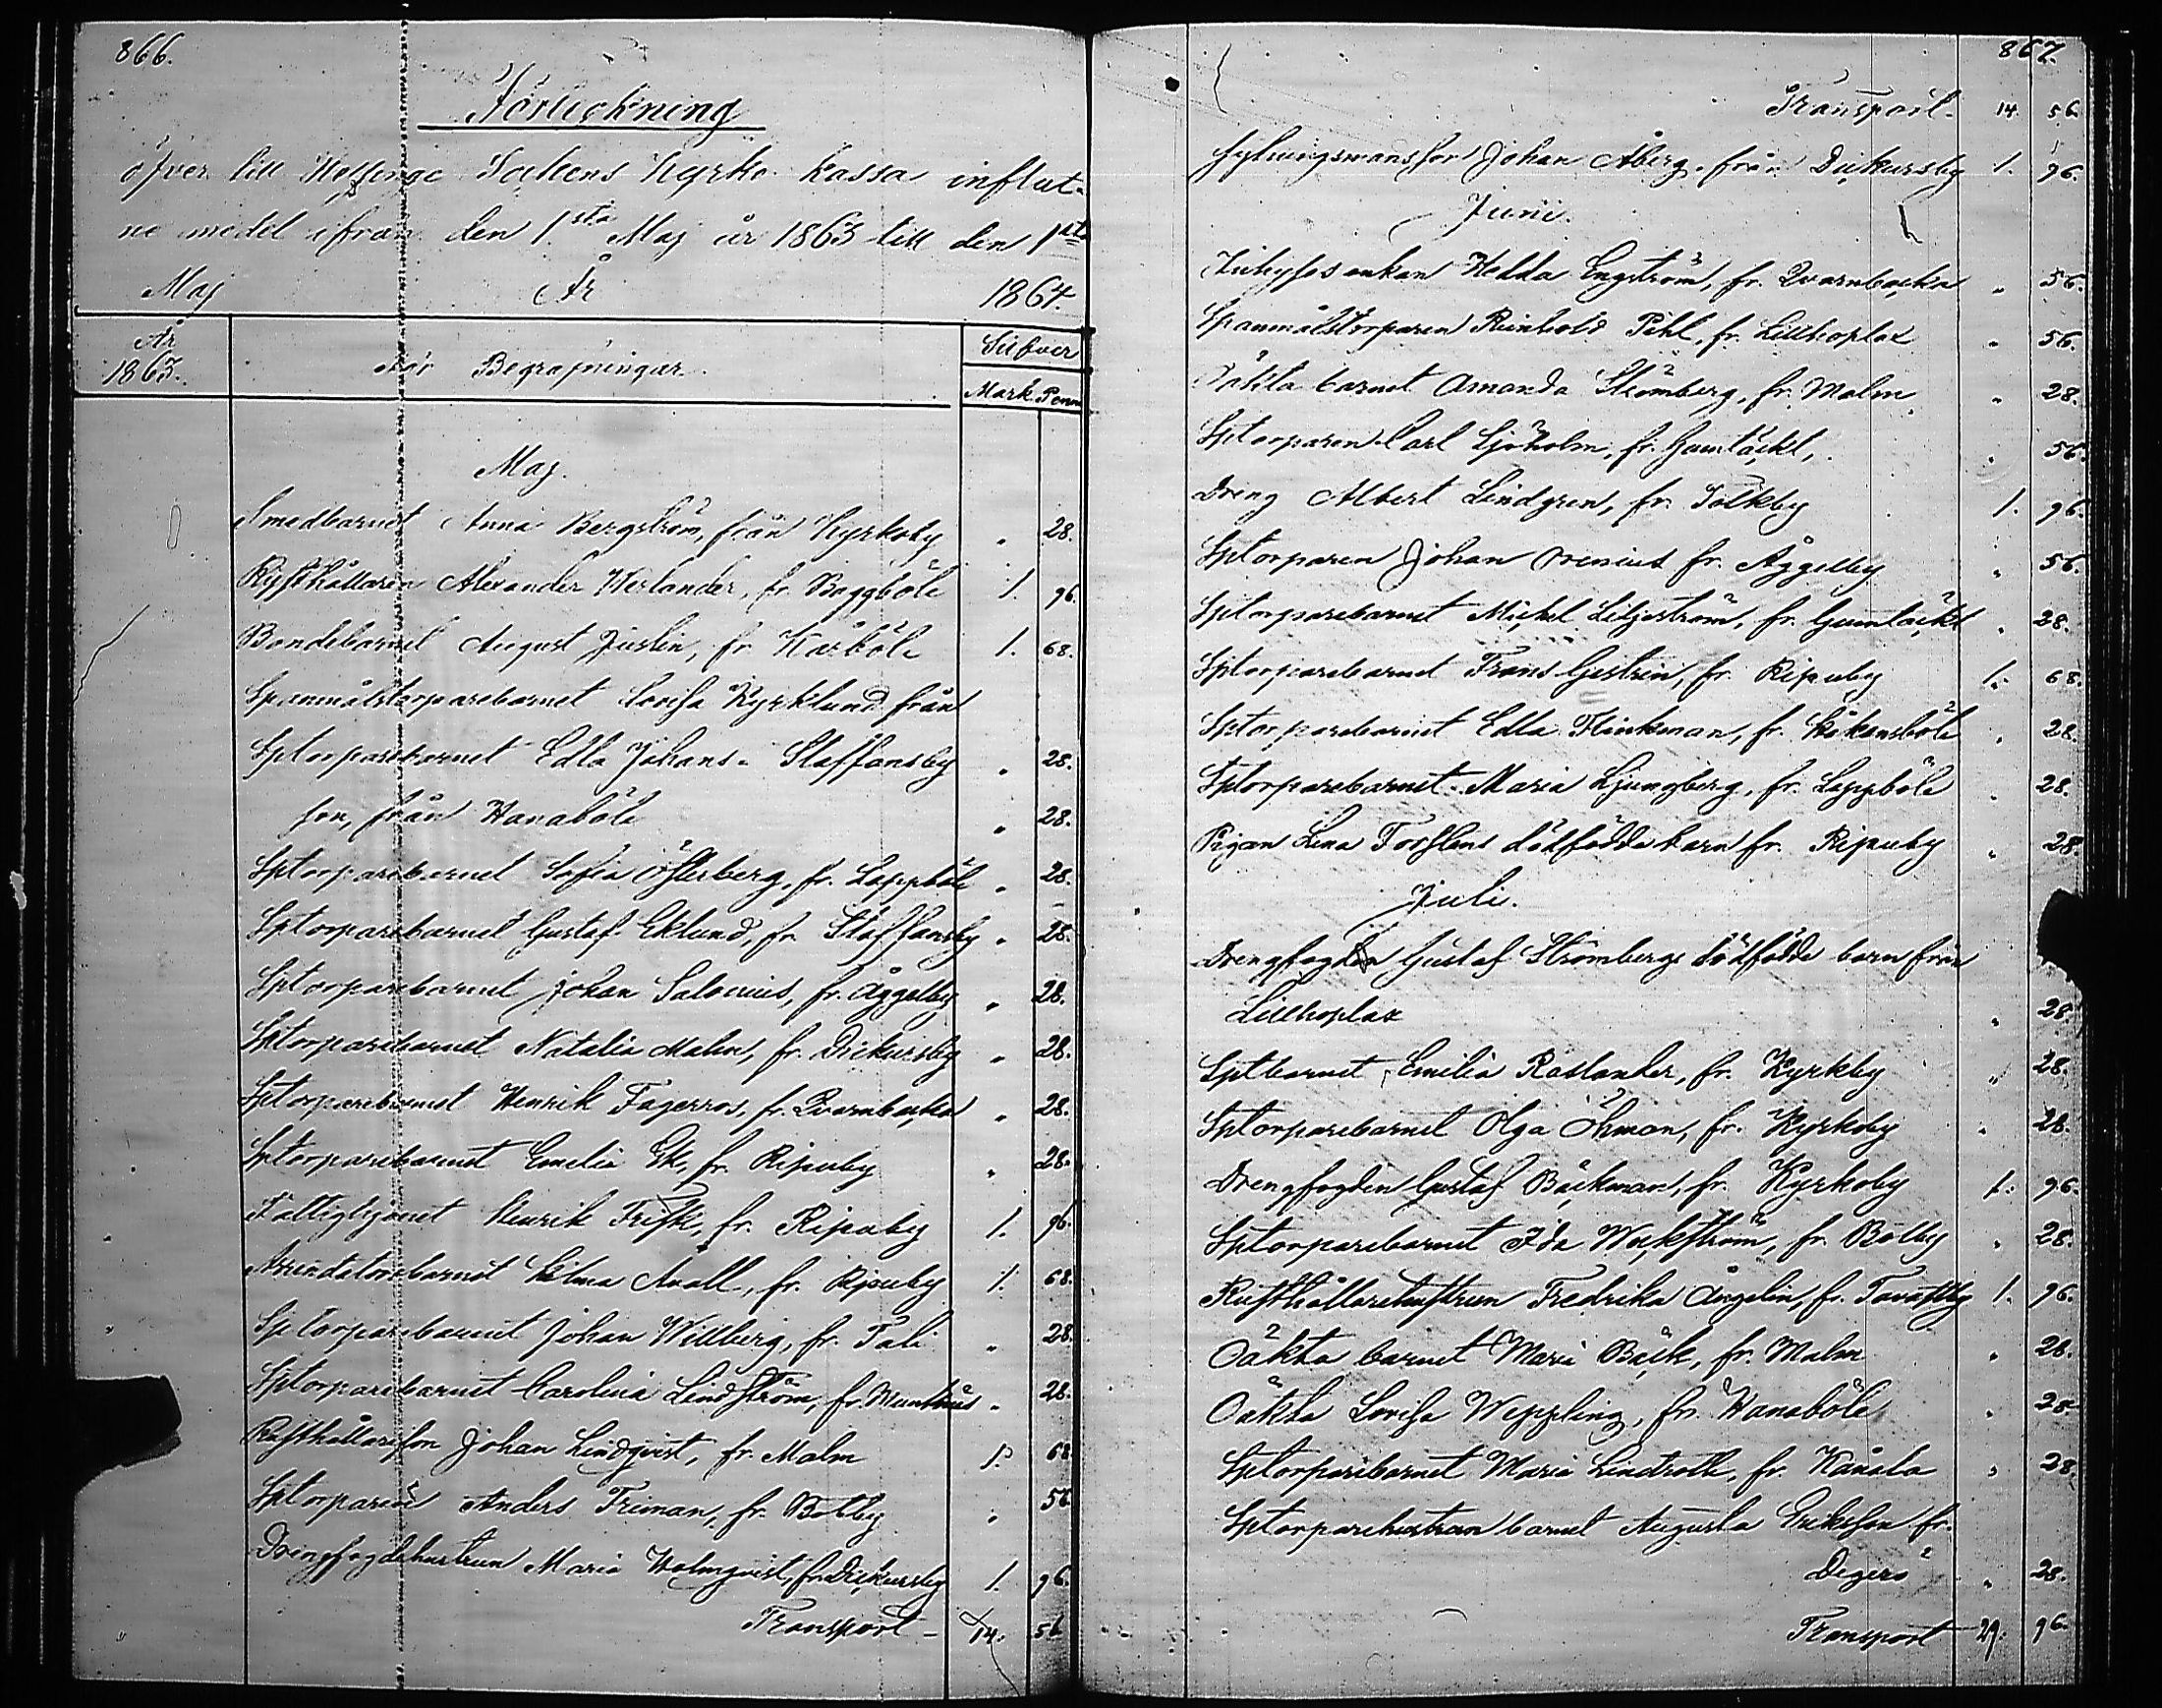 866.
Förteckning
öfver till Helsinge Sockens Kyrko kassa influt-
ne medel ifrån den 1sta Maj år 1863 till den 1sta
Maj År 1864.
År 1863. För Begrafningar. Silfver
Mark. Penni
Maj.
Smedbarnet Anna Bergström, från Kyrkoby " 28.
Rusthållaren Alexander Herlander, fr. Baggböle 1. 96.
Bondebarnet August Juslin, fr. Kårböle 1. 68.
Spanmålstorparebarnet Lovisa Kyrklund från
Sptorparebarnet Edla Johans- Staffansby " 28.
son, från Hanaböle " 28.
Sptorparebarnet Sofia Österberg, fr. Lappböle " 28.
Sptorparebarnet Gustaf Eklund, fr. Staffansby " 28.
Sptorparebarnet Johan Salenius, fr. Åggelby " 28.
Sptorparebarnet Natalia Malm, fr. Dickursby " 28.
Sptorparebarnet Henrik Fagerros, fr. Qvarnbacka " 28.
Sptorparebarnet Emelia Ek, fr. Ripuby " 28.
Fattighjonet Henrik Frisk, fr. Ripuby 1. 96.
Arrendatorsbarnet Hilma Avall, fr. Ripuby 1. 68.
Sptorparebarnet Johan Willberg, fr. Tali " 28.
Sptorparebarnet Carolina Lindström, fr. " 28.
Rusthållareson Johan Lindqvist, fr. Malm 1. 68
Sptorparen Anders Friman, fr. Botby " 56
Drengfogdehustrun Maria Holmqvist, fr. Dickursby 1. 96.
Transport - 14. 56
867.
Transport - 14. 56
Johan Åberg, från Dickursby 1. 96.
Junii.
enkan Hedda Engström, fr. Qvarnbacka " 56.
Spanmålstorparen Reinhold Pihl, fr. Lillhoplax " 56.
Oäkta barnet Amanda Strömberg, fr. Malm " 28.
Sptorparen Carl Sjöholm, fr. Gumtäckt, " 56.
Dreng Albert Lindgren, fr. Tolkby 1. 96.
Sptorparen Johan Orenius fr. Åggelby " 56.
Sptorparebarnet Michel Liljeström, fr. Gumtäckt " 28.
Sptorparebarnet Frans Gestrin, fr. Ripuby 1. 68.
Sptorparebarnet Edla Flinkman, fr. Håkansböle " 28.
Sptorparebarnet Maria Ljungberg, fr. Lappböle " 28.
Pigan Lena Forstens dödfödda barn fr. Ripuby " 28.
Juli.
Drengfogden Gustaf Strömbergs dödfödde barn från
Lillhoplax " 28.
Sptbarnet Emilia Roslander, fr. Kyrkby " 28.
Sptorparebarnet Olga Öhman, fr. Kyrkoby " 28.
Drengfogden Gustaf Bäckman, fr. Kyrkoby 1. 96.
Sptorparebarnet Ida Weckström, fr. Botby " 28.
Rusthållarehustrun Fredrika Ångelin, fr. Tavastby 1. 96.
Oäkta barnet Maria Bäck, fr. Malm " 28.
Oäkta Lovisa Weppling, fr. Hanaböle " 28
Sptorparebarnet Maria Lindroth, fr. Kånala " 28.
Sptorparehustrun barnet Augusta Eriksson fr.
Degerö " 28.
Transport 29. 96.